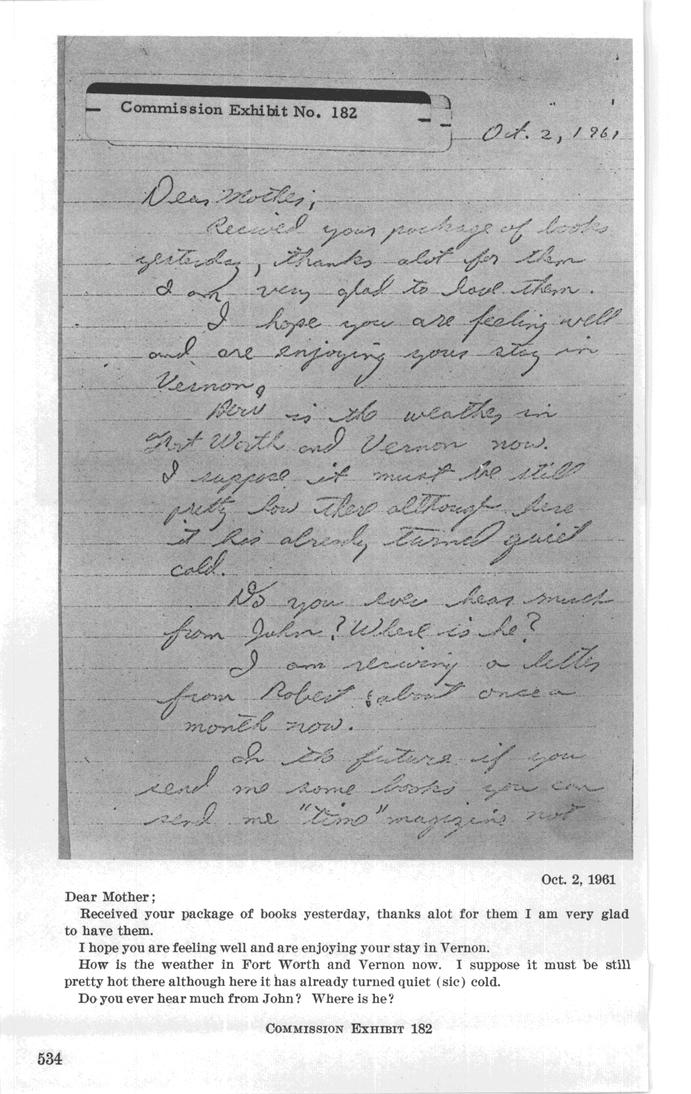 Commission Exhibit No. 182
Oct. 2, 1961
Dear Mother;
Recived your package of books
yesterday, thanks alot for them
I am very glad to have them.
I hope you are feeling well
and are enjoying your stay in
Vernon,
How is the weather in
Fort Worth and Vernon now.
I suppose it must be still
pretty how there although here
it has already turned quiet
cold.
Do you ever hear much
from John? Where is he?
I am reciving a letter
from Robert about once a
month now.
In the future if you
send me some books you can
send me "time" magizine not
Oct. 2, 1961
Dear Mother;
Received your package of books yesterday, thanks alot for them I am very glad
to have them.
I hope you are feeling well and are enjoying your stay in Vernon.
How is the weather in Fort Worth and Vernon now. I suppose it must be still
pretty hot there although here it has already turned quiet (sic) cold.
Do you ever hear much from John? Where is he?
COMMISSION EXHIBIT 182
534